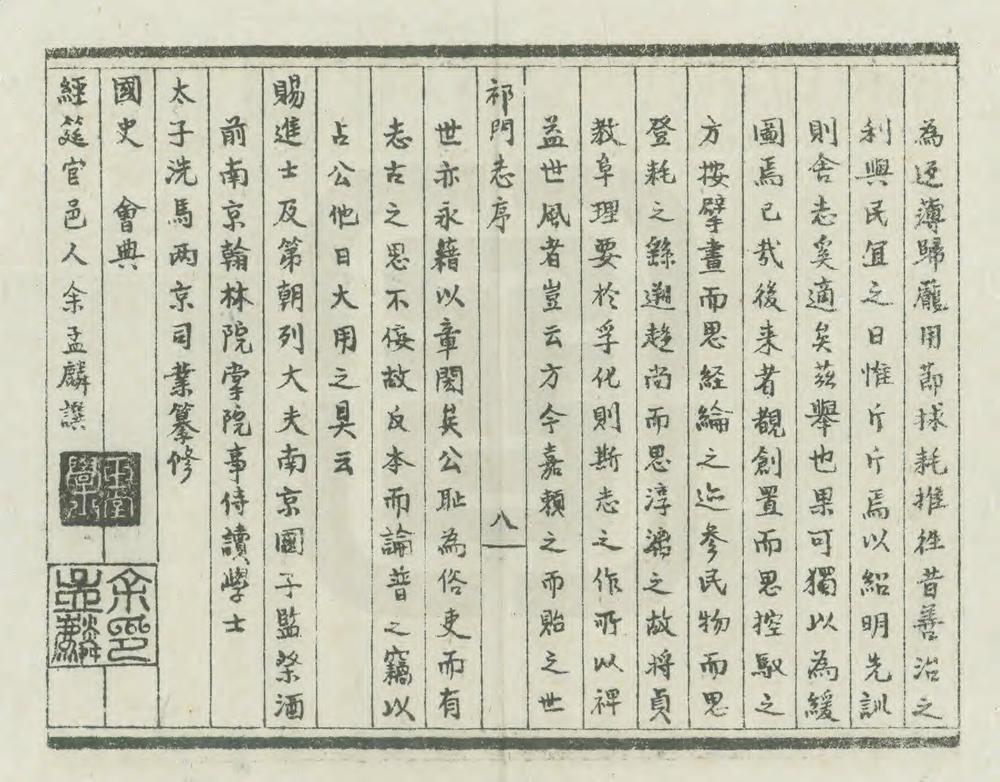 為返薄歸厖用節捄耗推徃昔善治之
利興民宜之日惟斤斤焉以紹明先訓
則舍志奚適矣茲舉也果可獨以為緩
圖焉已㢤後来者觀創置而思控馭之
方按擘畫而思經綸之迹參民物而思
登耗之繇遡趋尚而思淳漓之故將貞
教阜理要於孚化則斯志之作所以裨
益世風者豈云方今嘉頼之而貽之世
祁門志序
八
世亦永籍以章閎矣公耻為俗吏而有
志古之思不佞故反本而論著之竊以
占公他日大用之具云
賜進士及第朝列大夫南京國子監祭酒
前南京翰林院掌院事侍讀學士
太子洗馬两京司業纂修
國史 會典
經筵官邑人余孟麟譔
余孟麟印